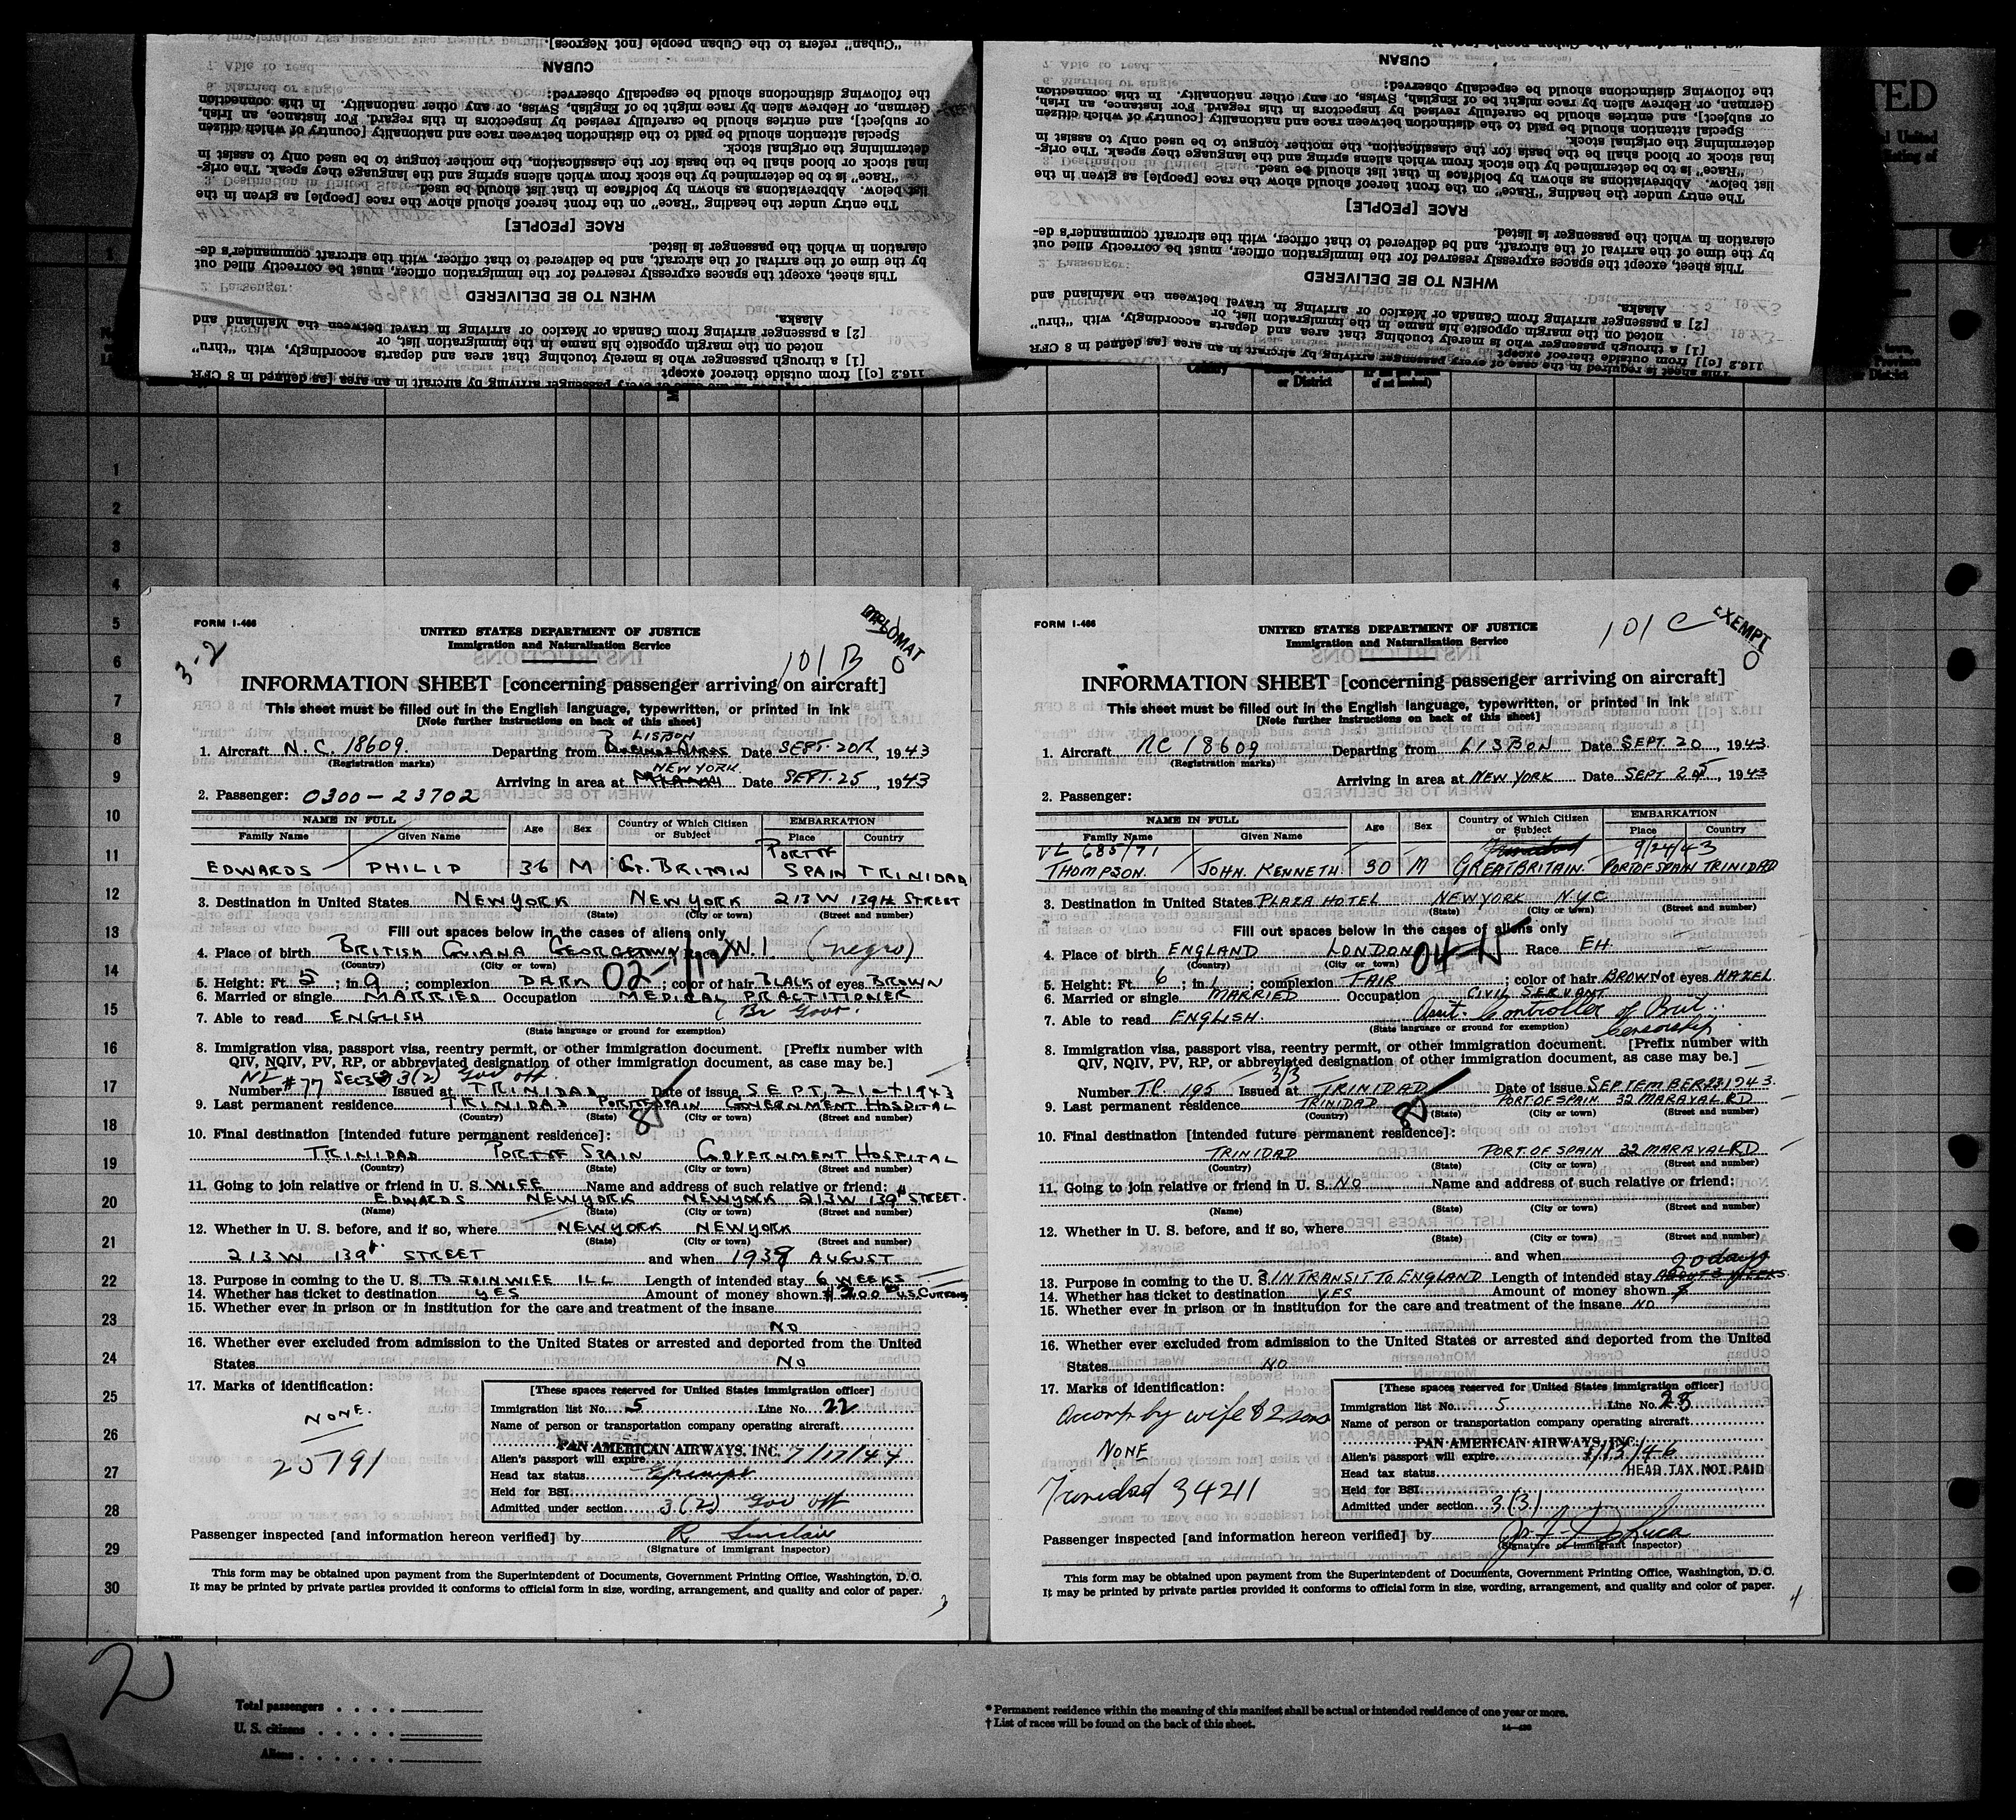 "Cuban" refers to the Cuban people [not Negroes].
CUBAN
the following distinctions should be especially observed:
German, or Hebrew alien by race might be of English, Swiss, or any other nationality. In this connection
or subject], and entries should be carefully revised by inspectors in this regard. For instance, an Irish,
Special attention should be paid to the distinction between race and nationality [country of which citizen
determining the original stock.
inal stock or blood shall be the basis for the classification, the mother tongue to be used only to assist in
"Race" is to be determined by the stock from which aliens spring and the language they speak. The orig-
list below. Abbreviations as shown by boldface in that list should be used.
The entry under the heading "Race" on the front hereof should show the race [people] as given in the
RACE [PEOPLE]
claration in which the passenger is listed.
by the time of the arrival of the aircraft, and be delivered to that officer, with the aircraft commander's de-
This sheet, except the spaces expressly reserved for the immigration officer, must be correctly filled out
WHEN TO BE DELIVERED
Alaska.
[2] a passenger arriving from Canada or Mexico or arriving in travel between the Mainland and
noted on the margin opposite his name in the immigration list, or
[1] a through passenger who is merely touching that area and departs accordingly, with "thru"
116.2 [c]] from outside thereof except
CUBAN
the following distinctions should be especially observed:
German, or Hebrew alien by race might be of English, Swiss, or any other nationality. In this connection
or subject], and entries should be carefully revised by inspectors in this regard. For instance, an Irish,
Special attention should be paid to the distinction between race and nationality [country of which citizen
determining the original stock.
inal stock or blood shall be the basis for the classification, the mother tongue to be used only to assist in
"Race" is to be determined by the stock from which aliens spring and the language they speak. The orig-
list below. Abbreviations as shown by boldface in that list should be used.
The entry under the heading "Race" on the front hereof should show the race [people] as given in the
RACE [PEOPLE]
claration in which the passenger is listed.
by the time of the arrival of the aircraft, and be delivered to that officer, with the aircraft commander's de-
This sheet, except the spaces expressly reserved for the immigration officer, must be correctly filled out
WHEN TO BE DELIVERED
Alaska.
[2] a passenger arriving from Canada or Mexico or arriving in travel between the Mainland and
noted on the margin opposite his name in the immigration list, or
[1] a through passenger who is merely touching that area and departs accordingly, with "thru"
116.2 [c]] from outside thereof except
This sheet is required in the case of every passenger arriving by aircraft in an area [as defined in 8 CFR
TED
Country
or District
of not involved)
or District
1
2
3
4
5
6
7
8
9
10
11
12
13
14
15
16
17
18
19
20
21
22
23
24
25
26
27
28
29
30
FORM I-466
3-2
DIPLOMAT
0
UNITED STATES DEPARTMENT OF JUSTICE
Immigration and Naturalization Service
101 B
INFORMATION SHEET [concerning passenger arriving on aircraft]
This sheet must be filled out in the English language, typewritten, or printed in ink
[Note further instructions on back of this sheet]
LISBON
1. Aircraft N.C. 18609. Departing from Buenos Aires Date SEPT. 20th, 1943
(Registration marks)
NEW YORK
Arriving in area at Miami Date SEPT. 25, 1943
2. Passenger: 0300-23702
NAME IN FULL Age Sex Country of Which Citizen or Subject EMBARKATION
Family Name Given Name Place Country
EDWARDS PHILIP 36 M GT. BRITAIN PORT OF SPAIN TRINIDAD
3. Destination in United States NEW YORK NEW YORK 213 W 139th STREET
(State) (City or town) (Street and number)
Fill out spaces below in the cases of aliens only
4. Place of birth BRITISH GUIANA GEORGETOWN Race W.I. (negro)
(Country) (City or town)
02-1/12
5. Height: Ft 5; in 9; complexion DARK; color of hair BLACK of eyes BROWN
6. Married or single MARRIED Occupation MEDICAL PRACTITIONER
(Br Govt.
7. Able to read ENGLISH
(State language or ground for exemption)
8. Immigration visa, passport visa, reentry permit, or other immigration document. [Prefix number with
QIV, NQIV, PV, RP, or abbreviated designation of other immigration document, as case may be.]
SEC 3(2) Gov off.
Number #77 Issued at TRINIDAD Date of issue SEPT, 21st 1943
9. Last permanent residence TRINIDAD PORT OF SPAIN GOVERNMENT HOSPITAL
(Country) (State) (City or town) (Street and number)
10. Final destination [intended future permanent residence]:
TRINIDAD PORT OF SPAIN GOVERNMENT HOSPITAL
(Country) (State) (City or town) (Street and number)
11. Going to join relative or friend in U. S. WIFE Name and address of such relative or friend:
EDWARDS NEW YORK NEW YORK 213 W 139th STREET.
(Name) (State) (City or town) (Street and number)
12. Whether in U. S. before, and if so, where NEW YORK NEW YORK
(State) (City or town) (Street and number)
213 W 139th STREET and when 1939 AUGUST
13. Purpose in coming to the U. S. TO JOIN WIFE ILL Length of intended stay 6 WEEKS
14. Whether has ticket to destination YES Amount of money shown $200 U.S. CURRENCY
15. Whether ever in prison or in institution for the care and treatment of the insane
NO
16. Whether ever excluded from admission to the United States or arrested and deported from the United
States NO
17. Marks of identification:
NONE.
25791
[These spaces reserved for United States immigration officer]
Immigration list No. 5 Line No. 22
Name of person or transportation company operating aircraft
PAN AMERICAN AIRWAYS, INC.
Alien's passport will expire 7/17/44
Head tax status Exempt
Held for BSI
Admitted under section 3(2) Gov off
Passenger inspected [and information hereon verified] by R Sinclair
(Signature of immigrant inspector)
This form may be obtained upon payment from the Superintendent of Documents, Government Printing Office, Washington, D. C.
It may be printed by private parties provided it conforms to official form in size, wording, arrangement, and quality and color of paper.
3
FORM I-466
101 C
EXEMPT
0
UNITED STATES DEPARTMENT OF JUSTICE
Immigration and Naturalization Service
INFORMATION SHEET [concerning passenger arriving on aircraft]
This sheet must be filled out in the English language, typewritten, or printed in ink
[Note further instructions on back of this sheet]
1. Aircraft NC 18609 Departing from LISBON Date SEPT. 20, 1943.
(Registration marks)
Arriving in area at NEW YORK Date SEPT 25, 1943
2. Passenger:
NAME IN FULL Age Sex Country of Which Citizen or Subject EMBARKATION
Family Name Given Name Place Country
VL 685/71 9/24/43
THOMPSON. JOHN. KENNETH. 30 M GREAT BRITAIN. PORT OF SPAIN TRINIDAD
3. Destination in United States PLAZA HOTEL NEW YORK N.Y.C
(State) (City or town) (Street and number)
Fill out spaces below in the cases of aliens only
4. Place of birth ENGLAND LONDON Race EH.
(Country) (City or town)
5. Height: Ft 6; in 1; complexion FAIR; color of hair BROWN of eyes HAZEL
6. Married or single MARRIED Occupation CIVIL SERVANT
Asst. Controller of Brit. Censorship
7. Able to read ENGLISH.
(State language or ground for exemption)
8. Immigration visa, passport visa, reentry permit, or other immigration document. [Prefix number with
QIV, NQIV, PV, RP, or abbreviated designation of other immigration document, as case may be.]
3/3
Number TC 195 Issued at TRINIDAD Date of issue SEPTEMBER 23 1943.
9. Last permanent residence TRINIDAD PORT OF SPAIN 32 MARAVAL RD
(Country) (State) (City or town) (Street and number)
10. Final destination [intended future permanent residence]:
TRINIDAD PORT OF SPAIN 32 MARAVAL RD
(Country) (State) (City or town) (Street and number)
11. Going to join relative or friend in U. S. NO Name and address of such relative or friend:
(Name) (State) (City or town) (Street and number)
12. Whether in U. S. before, and if so, where
(State) (City or town) (Street and number)
and when
20 days
13. Purpose in coming to the U. S. IN TRANSIT TO ENGLAND Length of intended stay ABOUT 3 WEEKS
14. Whether has ticket to destination YES Amount of money shown
15. Whether ever in prison or in institution for the care and treatment of the insane NO
16. Whether ever excluded from admission to the United States or arrested and deported from the United
States NO
17. Marks of identification:
Accomp by wife & 2 sons
NONE
Trinidad 34211
[These spaces reserved for United States immigration officer]
Immigration list No. 5 Line No. 23
Name of person or transportation company operating aircraft
PAN AMERICAN AIRWAYS, INC.
Alien's passport will expire 1/13/46
Head tax status HEAD TAX NOT PAID
Held for BSI
Admitted under section 3(3)
Passenger inspected [and information hereon verified] by
(Signature of immigrant inspector)
This form may be obtained upon payment from the Superintendent of Documents, Government Printing Office, Washington, D. C.
It may be printed by private parties provided it conforms to official form in size, wording, arrangement, and quality and color of paper.
4
2
Total passengers
U. S. citizens
Aliens
* Permanent residence within the meaning of this manifest shall be actual or intended residence of one year or more.
† List of races will be found on the back of this sheet.